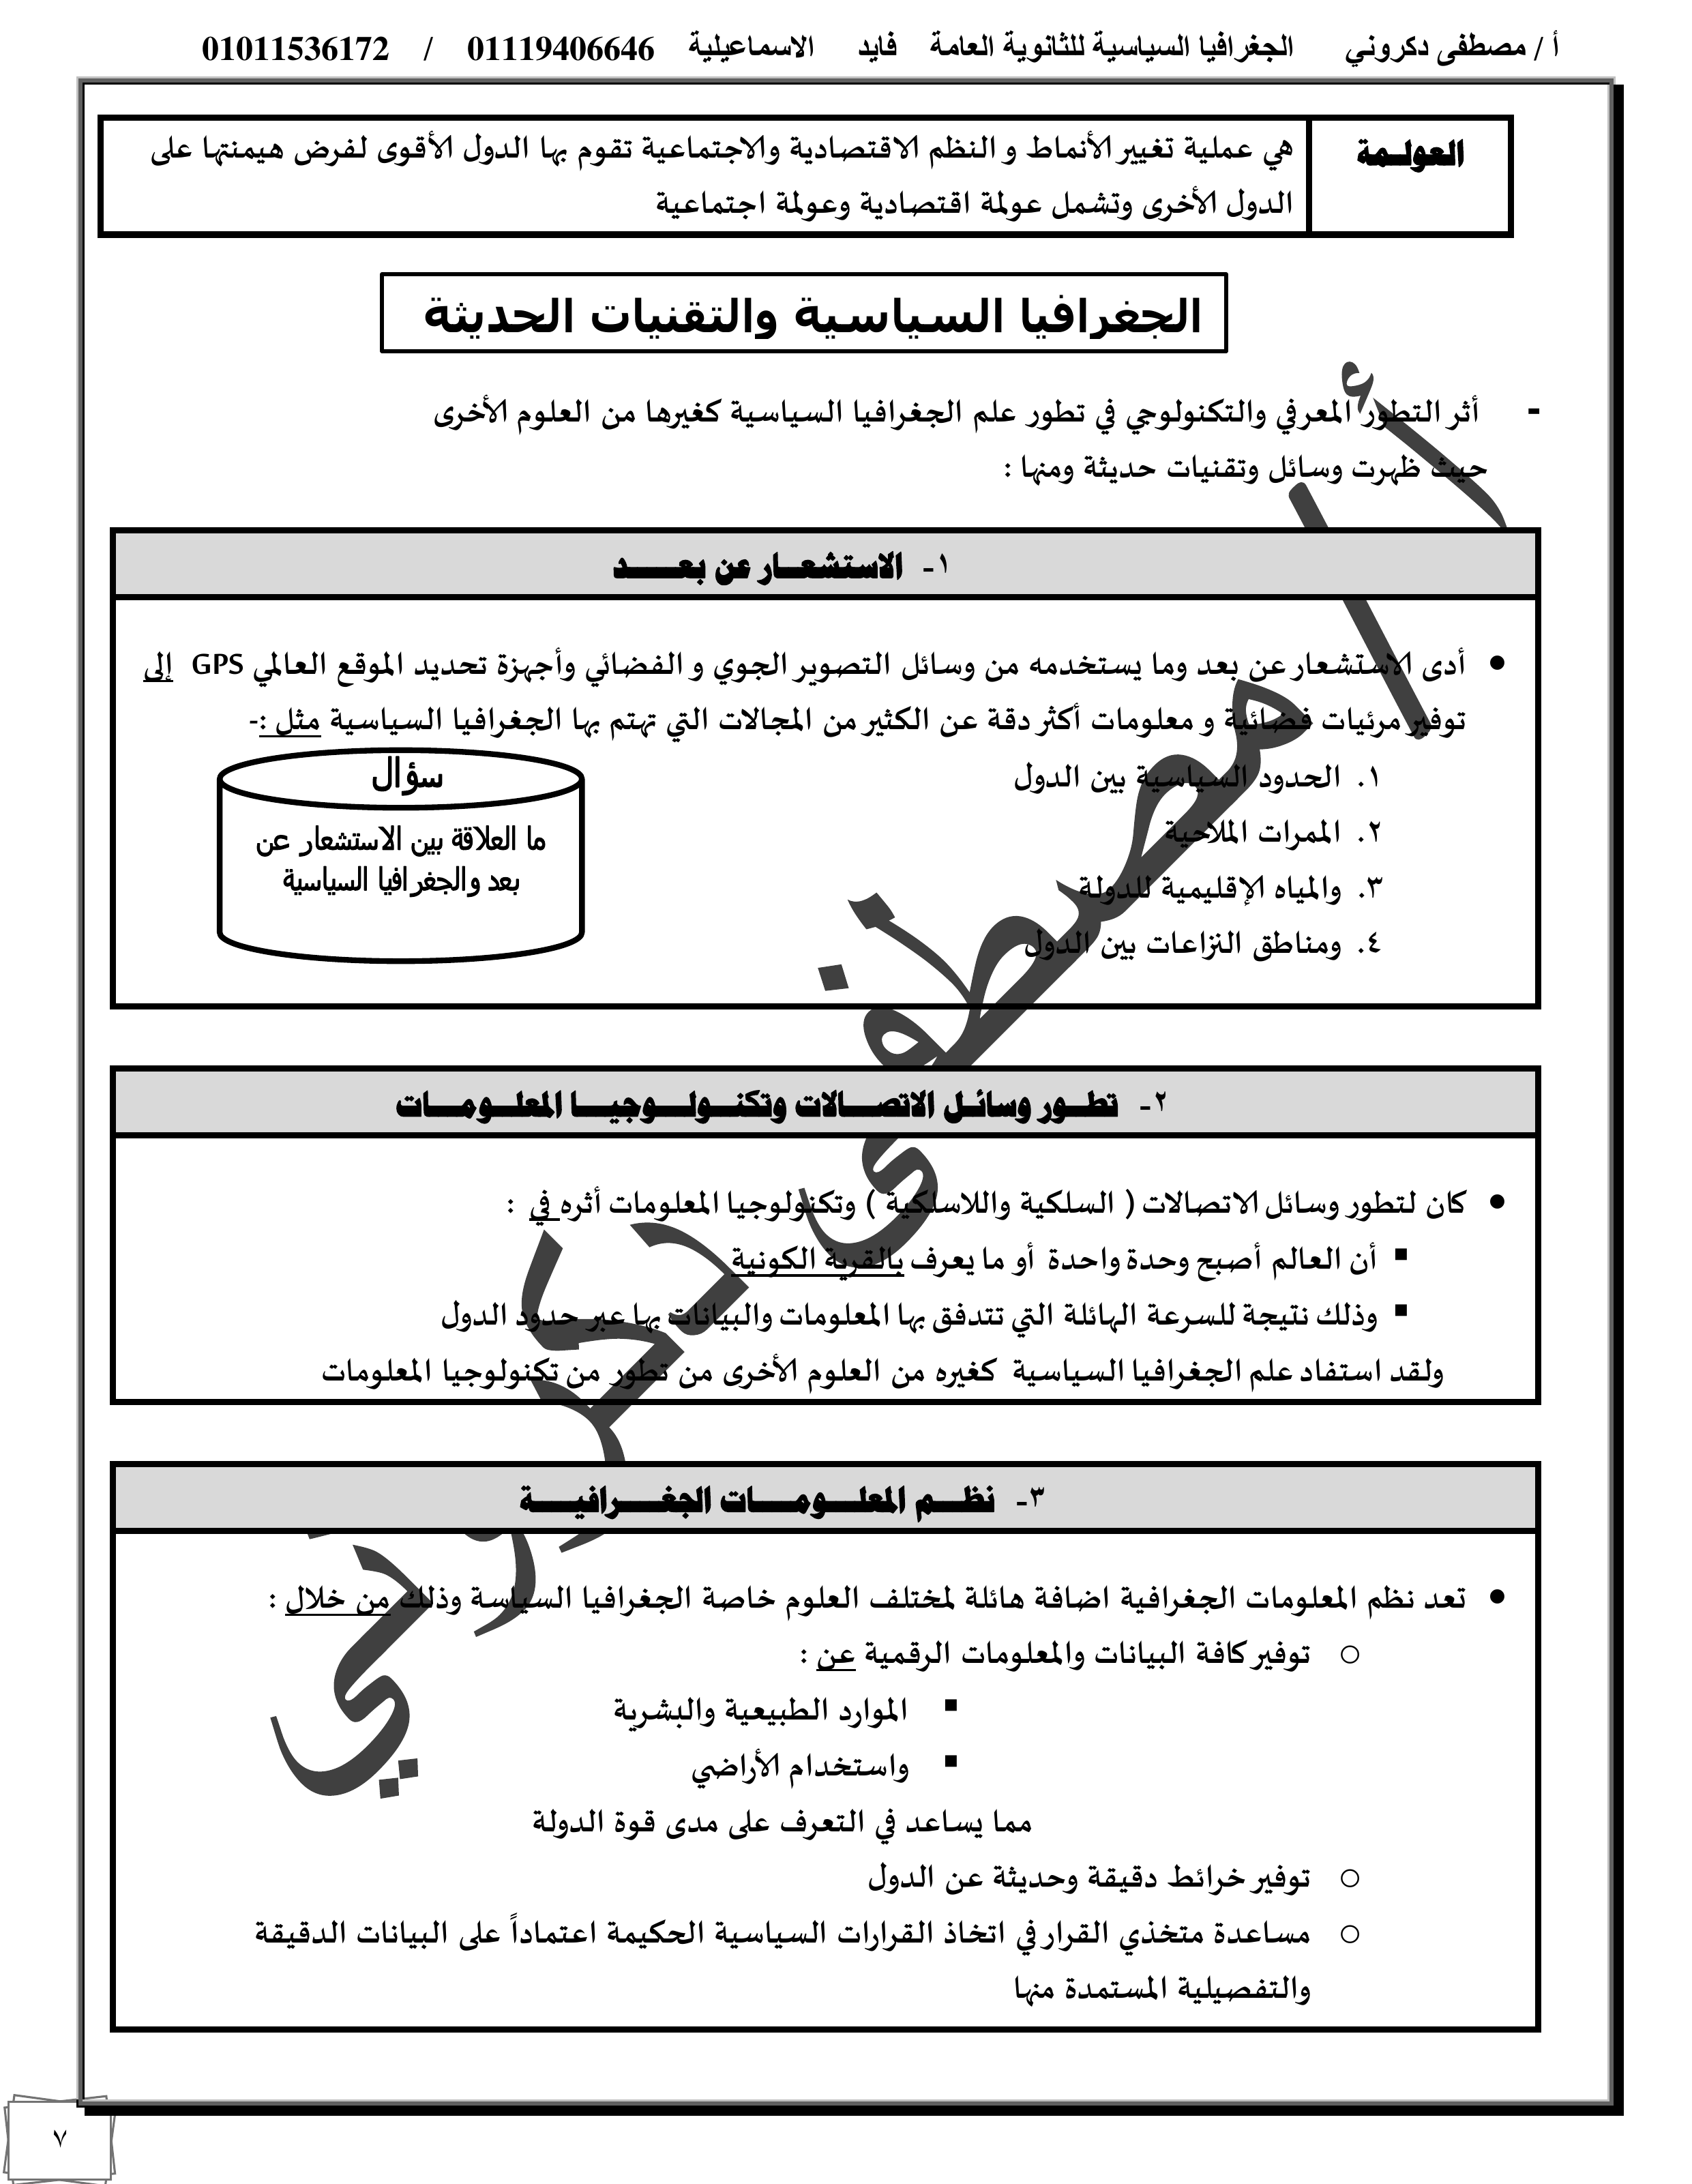 أ / مصطفى دكروني الجغرافيا السياسية للثانوية العامة فايد الاسماعيلية 01119406646 / 01011536172
العولمة
هي عملية تغيير الأنماط و النظم الاقتصادية والاجتماعية تقوم بها الدول الأقوى لفرض هيمنتها على
الدول الأخرى وتشمل عولمة اقتصادية وعولمة اجتماعية
الجغرافيا السياسية والتقنيات الحديثة
- أثر التطور المعرفي والتكنولوجي في تطور علم الجغرافيا السياسية كغيرها من العلوم الأخرى
حيث ظهرت وسائل وتقنيات حديثة ومنها :
١- الاستشعار عن بعد
● أدى الاستشعار عن بعد وما يستخدمه من وسائل التصوير الجوي و الفضائي وأجهزة تحديد الموقع العالمي GPS إلى
توفير مرئيات فضائية و معلومات أكثر دقة عن الكثير من المجالات التي تهتم بها الجغرافيا السياسية مثل :-
١. الحدود السياسية بين الدول
٢. الممرات الملاحية
٣. والمياه الإقليمية للدولة
٤. ومناطق النزاعات بين الدول
سؤال
ما العلاقة بين الاستشعار عن
بعد والجغرافيا السياسية
٢- تطور وسائل الاتصالات وتكنولوجيا المعلومات
● كان لتطور وسائل الاتصالات ( السلكية واللاسلكية ) وتكنولوجيا المعلومات أثره في :
▪ أن العالم أصبح وحدة واحدة أو ما يعرف بالقرية الكونية
▪ وذلك نتيجة للسرعة الهائلة التي تتدفق بها المعلومات والبيانات بها عبر حدود الدول
ولقد استفاد علم الجغرافيا السياسية كغيره من العلوم الأخرى من تطور من تكنولوجيا المعلومات
٣- نظم المعلومات الجغرافية
● تعد نظم المعلومات الجغرافية اضافة هائلة لمختلف العلوم خاصة الجغرافيا السياسة وذلك من خلال :
○ توفير كافة البيانات والمعلومات الرقمية عن :
▪ الموارد الطبيعية والبشرية
▪ واستخدام الأراضي
مما يساعد في التعرف على مدى قوة الدولة
○ توفير خرائط دقيقة وحديثة عن الدول
○ مساعدة متخذي القرار في اتخاذ القرارات السياسية الحكيمة اعتماداً على البيانات الدقيقة
والتفصيلية المستمدة منها
أ / مصطفى دكروني
٧